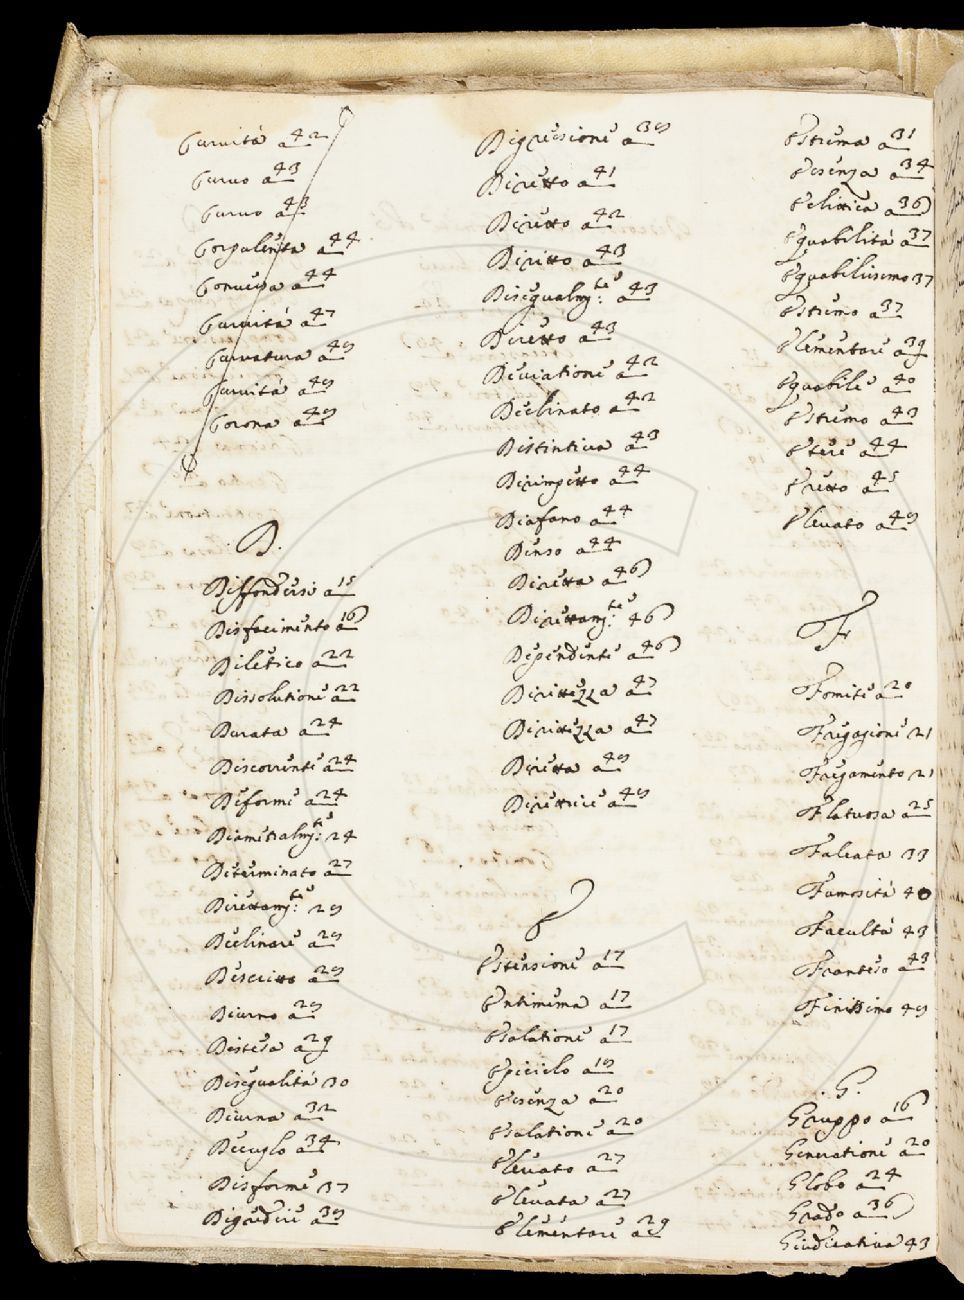 Curuità a 42
Curuo a 43
Curuo a 43
Corpulenta a 44
Conuessa a 44
Curuità a 47
Curuatura a 49
Curuità a 49
Corona a 49
D.
Diffondersi a 15
Disfacimento a 16
Diletico a 22
Dissolutione a 22
Durata a 24
Discorrente a 24
Deforme a 24
Diametralm.te 24
Determinato a 27
Direttam.te 29
Declinare a 29
Descritto a 29
Diurno a 29
Distesa a 29
Disegualità 30
Diurna a 32
Disforme 37
Digredire a 39
Digressione a 39
Diretto a 41
Diretto a 42
Diritto a 43
Disegualm.te a 43
Diretto a 43
Deuiatione a 42
Declinato a 42
Distintiua a 43
Dirimpetto a 44
Diafano a 44
Denso a 44
Diretta a 46
Direttam.te 46
Dependente a 46
Dirittezza a 47
Dirittezza a 47
Diretta a 49
Direttrice a 49
E
Estensione a 17
Entimema a 17
Esalatione a 17
Epiciclo a 19
Essenza a 20
Esalatione a 20
Eleuato a 27
Eleuata a 27
Elementare a 29
Estrema a 31
Essenza a 34
Eclittica a 36
Equabilità a 37
Equabilissimo 37
Estremo a 37
Elementare a 39
Equabile a 40
Estremo a 43
Etere a 44
Eretto a 45
Eleuato a 49
F
Fomite a 20
Fregagione 21
Fregamento 21
Flatuosa a 25
Falcata 33
Fumosità 40
Facultà 43
Frontese a 43
Finissimo 49
G.
Gruppo a 16
Generatione a 20
Globo a 24
Grado a 36
Giudicatiua 43